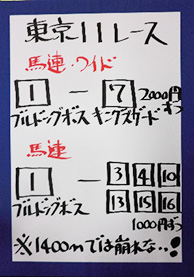 東京11レース
馬連・ワイド
1 ー 7 2000円ずつ
ブルドッグボス キングズガード
馬連
1 ー 3 4 10
13 15 16
ブルドッグボス
1000円ずつ
※1400mでは崩れな・・!